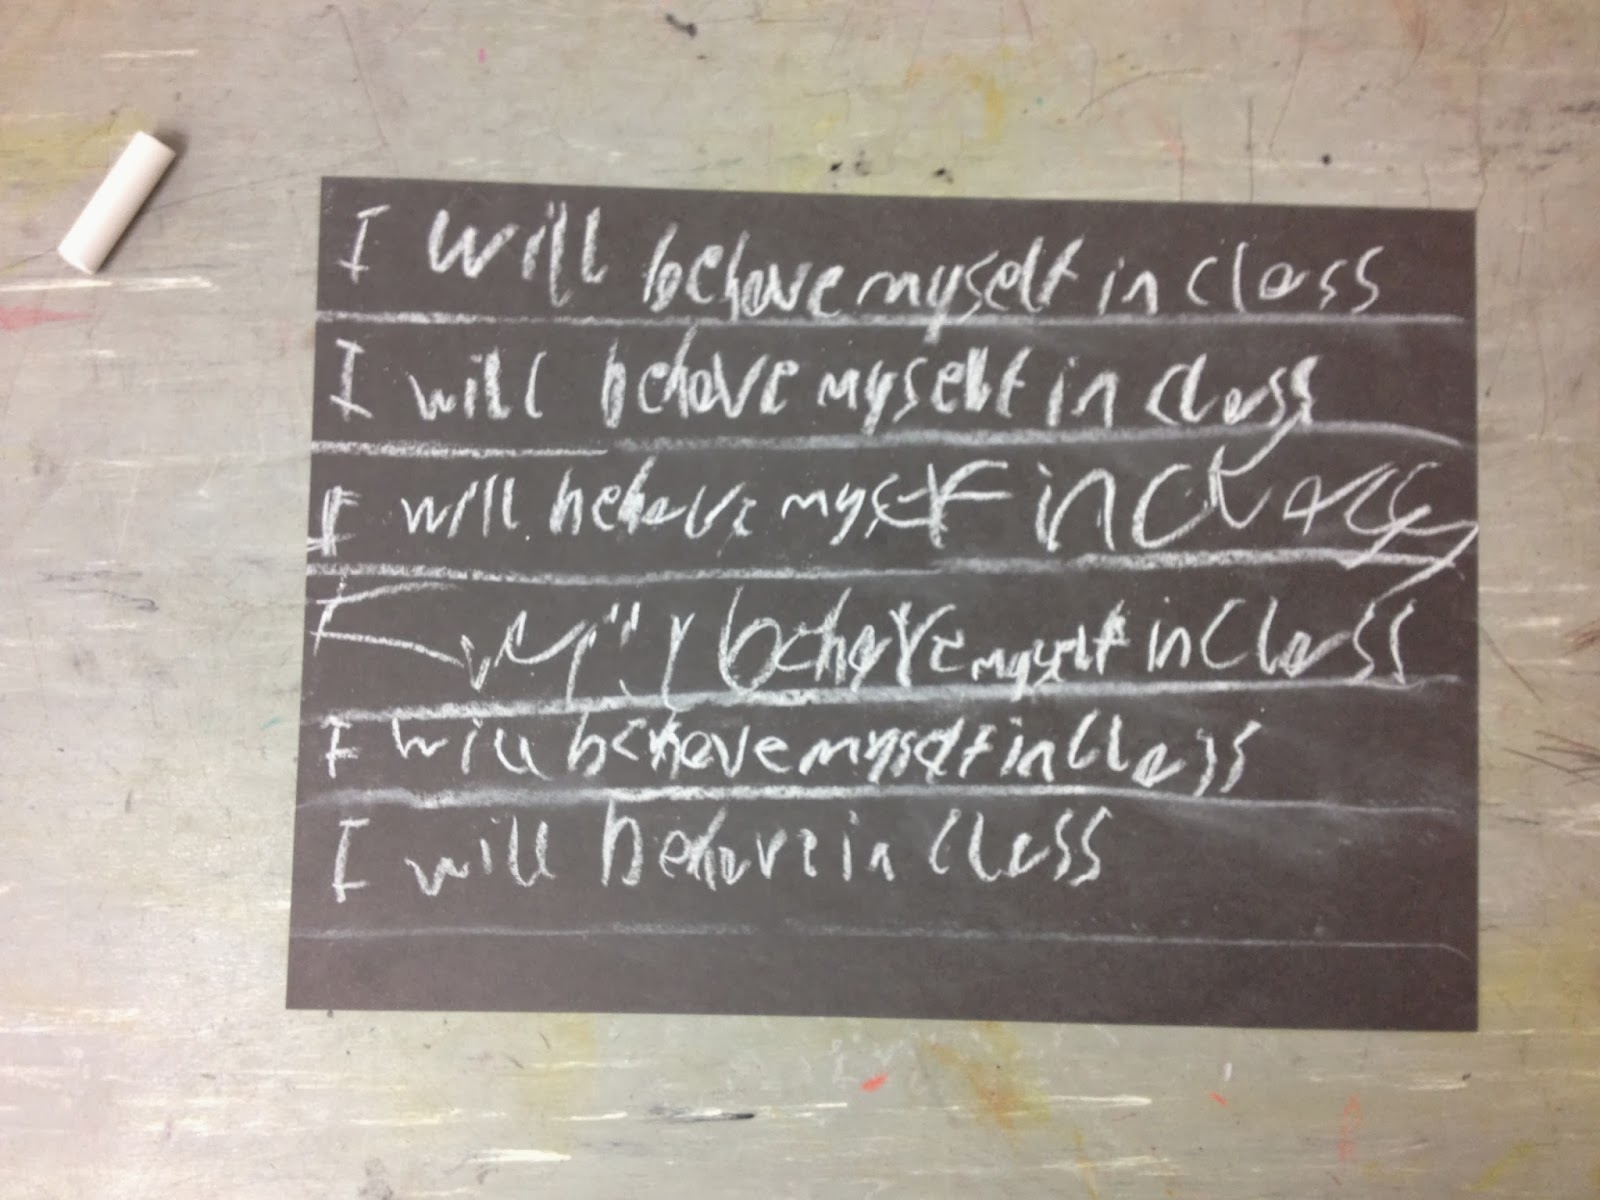 I will behave myself in class
I will behave myself in class
I will behave myself in class
I will behave myself in class
I will behave myself in class
I will behave in class